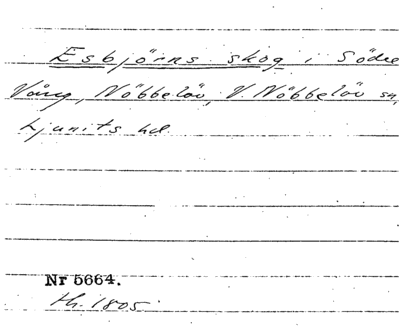 Esbjörns skog i Södre
Vång, Nöbbelöv, V. Nöbbelöv sn,
Ljunits hd.
Nr 5664.
th. 1805.